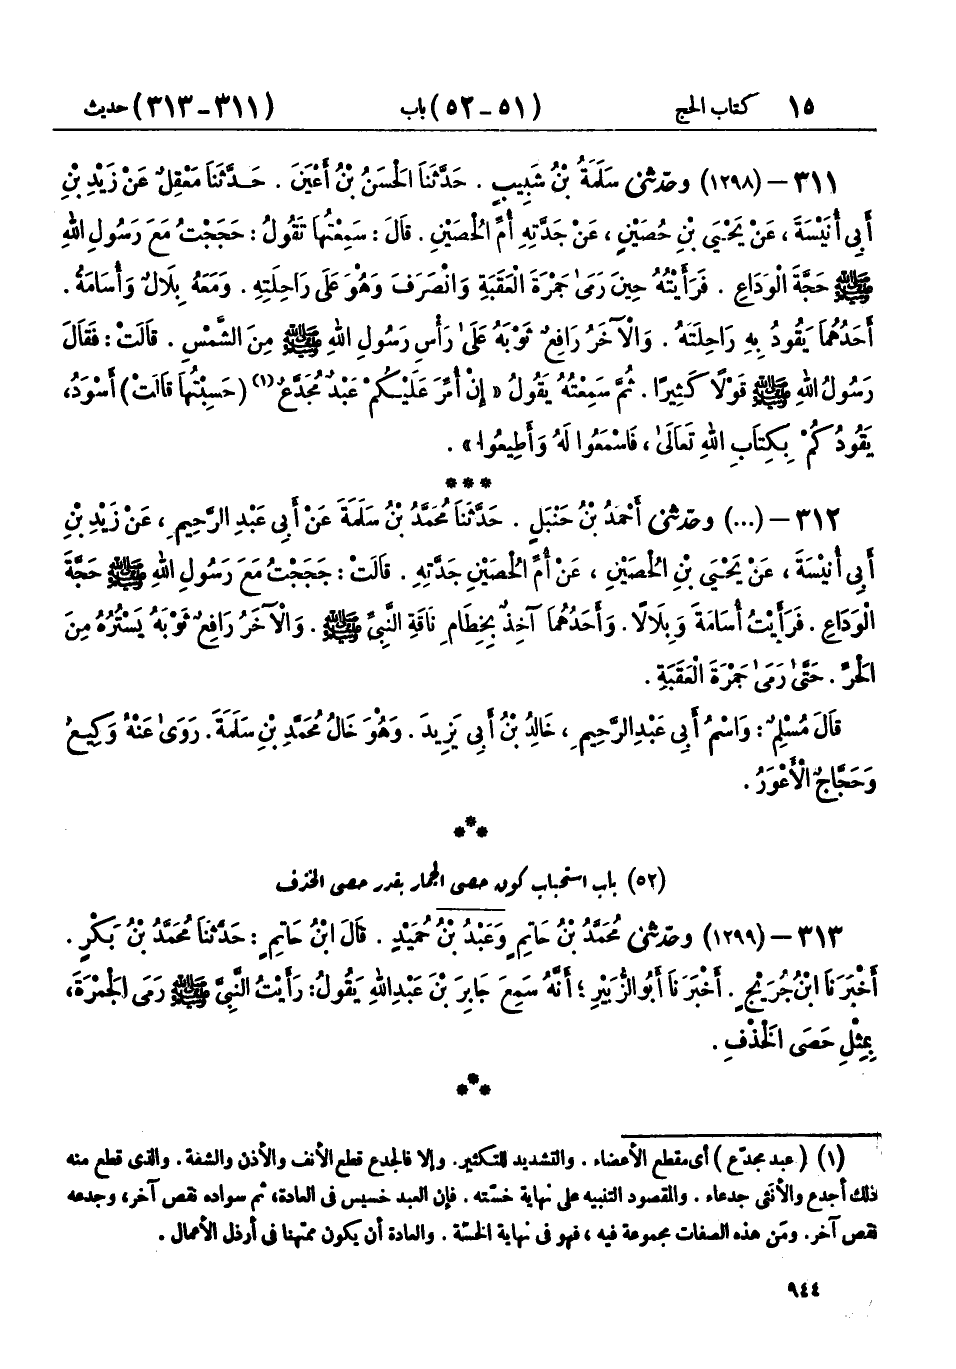 ١٥ كتاب الحج (٥١-٥٢) باب (٣١١-٣١٣) حديث
٣١١ - (١٢٩٨) وحدثني سَلَمَةُ بْنُ شَبِيبٍ . حَدَّثَنَا الْحَسَنُ بْنُ أَعْيَنَ . حَدَّثَنَا مَعْقِلٌ عَنْ زَيْدِ بْنِ
أَبِي أُنَيْسَةَ ، عَنْ يَحْيَى بْنِ حُصَيْنٍ ، عَنْ جَدَّتِهِ أُمِّ الْحُصَيْنِ . قَالَ : سَمِعْتُهَا تَقُولُ : حَجَجْتُ مَعَ رَسُولِ اللهِ
ﷺ حَجَّةَ الْوَدَاعِ . فَرَأَيْتُهُ حِينَ رَمَىٰ جَمْرَةَ الْعَقَبَةِ وَانْصَرَفَ وَهُوَ عَلَى رَاحِلَتِهِ . وَمَعَهُ بِلَالٌ وَأُسَامَةُ .
أَحَدُهُمَا يَقُودُ بِهِ رَاحِلَتَهُ . وَالْآخَرُ رَافِعٌ ثَوْبَهُ عَلَىٰ رَأْسِ رَسُولِ اللهِ ﷺ مِنَ الشَّمْسِ . قَالَتْ : فَقَالَ
رَسُولُ اللهِ ﷺ قَوْلًا كَثِيرًا . ثُمَّ سَمِعْتُهُ يَقُولُ « إِنْ أُمِّرَ عَلَيْكُمْ عَبْدٌ مُجَدَّعٌ (١) (حَسِبْتُهَا قَالَتْ) أَسْوَدُ،
يَقُودُكُمْ بِكِتَابِ اللهِ تَعَالَىٰ ، فَاسْمَعُوا لَهُ وَأَطِيعُوا » .
***
٣١٢ - (...) وحدثني أَحْمَدُ بْنُ حَنْبَلٍ . حَدَّثَنَا مُحَمَّدُ بْنُ سَلَمَةَ عَنْ أَبِي عَبْدِ الرَّحِيمِ ، عَنْ زَيْدِ بْنِ
أَبِي أُنَيْسَةَ ، عَنْ يَحْيَى بْنِ الْحُصَيْنِ ، عَنْ أُمِّ الْحُصَيْنِ جَدَّتِهِ . قَالَتْ : حَجَجْتُ مَعَ رَسُولِ اللهِ ﷺ حَجَّةَ
الْوَدَاعِ . فَرَأَيْتُ أُسَامَةَ وَبِلَالًا . وَأَحَدُهُمَا آخِذٌ بِخِطَامِ نَاقَةِ النَّبِيِّ ﷺ . وَالْآخَرُ رَافِعٌ ثَوْبَهُ يَسْتُرُهُ مِنَ
الْحَرِّ . حَتَّىٰ رَمَىٰ جَمْرَةَ الْعَقَبَةِ .
قَالَ مُسْلِمٌ : وَاسْمُ أَبِي عَبْدِ الرَّحِيمِ ، خَالِدُ بْنُ أَبِي يَزِيدَ . وَهُوَ خَالُ مُحَمَّدِ بْنِ سَلَمَةَ . رَوَىٰ عَنْهُ وَكِيعٌ
وَحَجَّاجٌ الْأَعْوَرُ .
***
(٥٢) باب استحباب كون حصى الجمار بقدر حصى الخذف
٣١٣ - (١٢٩٩) وحدثني مُحَمَّدُ بْنُ حَاتِمٍ وَعَبْدُ بْنُ حُمَيْدٍ . قَالَ ابْنُ حَاتِمٍ : حَدَّثَنَا مُحَمَّدُ بْنُ بَكْرٍ .
أَخْبَرَنَا ابْنُ جُرَيْجٍ . أَخْبَرَنَا أَبُو الزُّبَيْرِ ؛ أَنَّهُ سَمِعَ جَابِرَ بْنَ عَبْدِ اللهِ يَقُولُ : رَأَيْتُ النَّبِيَّ ﷺ رَمَى الْجَمْرَةَ،
بِمِثْلِ حَصَى الْخَذْفِ .
***
(١) ( عبد مجدّع ) أى مقطع الأعضاء . والتشديد للتكثير. وإلا فالجدع قطع الأنف والأذن والشفة . والذى قطع منه
ذلك أجدع والأنثى جدعاء . والمقصود التنبيه على نهاية خسّته . فإن العبد خسيس فى العادة، ثم سواده نقص آخر، وجدعه
نقص آخر. ومَن هذه الصفات مجموعة فيه ، فهو فى نهاية الخسّة . والعادة أن يكون ممتهنا فى أرذل الأعمال .
٩٤٤